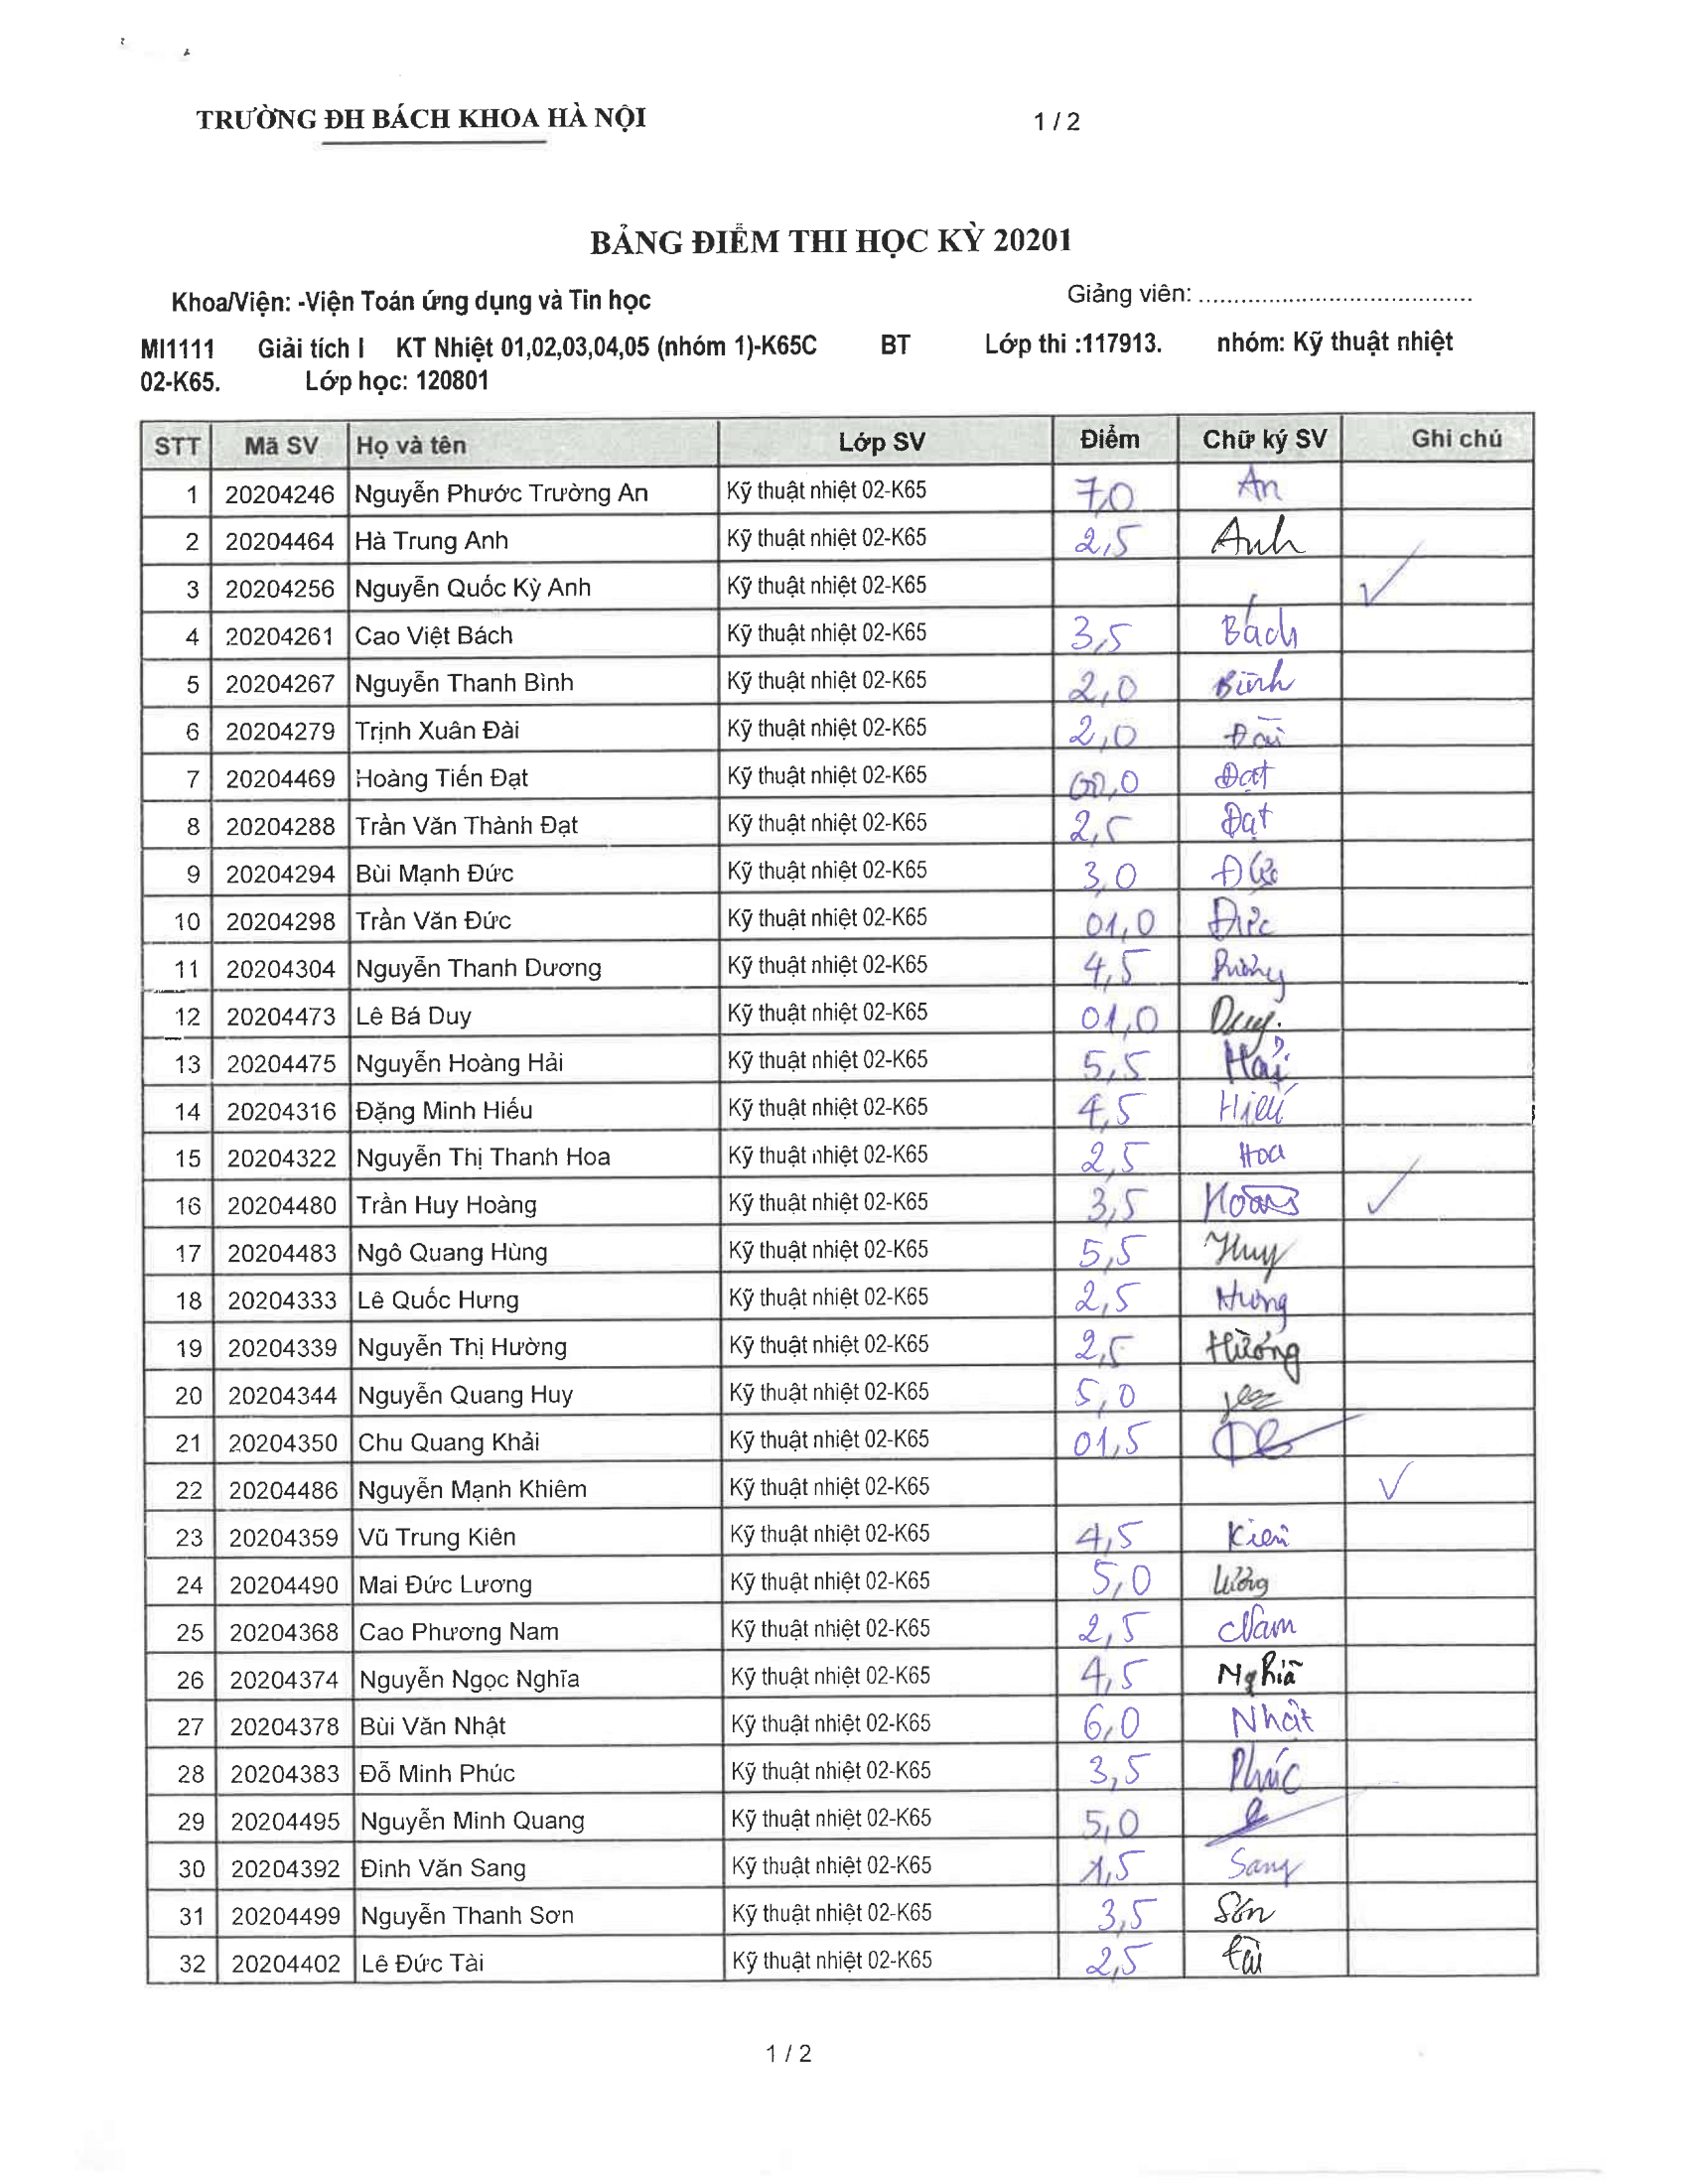 TRƯỜNG ĐH BÁCH KHOA HÀ NỘI 1 / 2
BẢNG ĐIỂM THI HỌC KỲ 20201
Khoa/Viện: -Viện Toán ứng dụng và Tin học Giảng viên: .......................................
MI1111 Giải tích I KT Nhiệt 01,02,03,04,05 (nhóm 1)-K65C BT Lớp thi :117913. nhóm: Kỹ thuật nhiệt
02-K65. Lớp học: 120801
STT Mã SV Họ và tên Lớp SV Điểm Chữ ký SV Ghi chú
1 20204246 Nguyễn Phước Trường An Kỹ thuật nhiệt 02-K65 7,0 An
2 20204464 Hà Trung Anh Kỹ thuật nhiệt 02-K65 2,5 Anh
3 20204256 Nguyễn Quốc Kỳ Anh Kỹ thuật nhiệt 02-K65 ✓
4 20204261 Cao Việt Bách Kỹ thuật nhiệt 02-K65 3,5 Bách
5 20204267 Nguyễn Thanh Bình Kỹ thuật nhiệt 02-K65 2,0 Bình
6 20204279 Trịnh Xuân Đài Kỹ thuật nhiệt 02-K65 2,0 Đài
7 20204469 Hoàng Tiến Đạt Kỹ thuật nhiệt 02-K65 00,0 Đạt
8 20204288 Trần Văn Thành Đạt Kỹ thuật nhiệt 02-K65 2,5 Đạt
9 20204294 Bùi Mạnh Đức Kỹ thuật nhiệt 02-K65 3,0 Đức
10 20204298 Trần Văn Đức Kỹ thuật nhiệt 02-K65 01,0 Đức
11 20204304 Nguyễn Thanh Dương Kỹ thuật nhiệt 02-K65 4,5 Dương
12 20204473 Lê Bá Duy Kỹ thuật nhiệt 02-K65 01,0 Duy.
13 20204475 Nguyễn Hoàng Hải Kỹ thuật nhiệt 02-K65 5,5 Hải
14 20204316 Đặng Minh Hiếu Kỹ thuật nhiệt 02-K65 4,5 Hiếu
15 20204322 Nguyễn Thị Thanh Hoa Kỹ thuật nhiệt 02-K65 2,5 Hoa
16 20204480 Trần Huy Hoàng Kỹ thuật nhiệt 02-K65 3,5 Hoàng ✓
17 20204483 Ngô Quang Hùng Kỹ thuật nhiệt 02-K65 5,5
18 20204333 Lê Quốc Hưng Kỹ thuật nhiệt 02-K65 2,5 Hưng
19 20204339 Nguyễn Thị Hường Kỹ thuật nhiệt 02-K65 2,5 Hường
20 20204344 Nguyễn Quang Huy Kỹ thuật nhiệt 02-K65 5,0
21 20204350 Chu Quang Khải Kỹ thuật nhiệt 02-K65 01,5
22 20204486 Nguyễn Mạnh Khiêm Kỹ thuật nhiệt 02-K65 ✓
23 20204359 Vũ Trung Kiên Kỹ thuật nhiệt 02-K65 4,5 Kiên
24 20204490 Mai Đức Lương Kỹ thuật nhiệt 02-K65 5,0 Lương
25 20204368 Cao Phương Nam Kỹ thuật nhiệt 02-K65 2,5 Nam
26 20204374 Nguyễn Ngọc Nghĩa Kỹ thuật nhiệt 02-K65 4,5 Nghĩa
27 20204378 Bùi Văn Nhật Kỹ thuật nhiệt 02-K65 6,0 Nhật
28 20204383 Đỗ Minh Phúc Kỹ thuật nhiệt 02-K65 3,5 Phúc
29 20204495 Nguyễn Minh Quang Kỹ thuật nhiệt 02-K65 5,0
30 20204392 Đinh Văn Sang Kỹ thuật nhiệt 02-K65 1,5 Sang
31 20204499 Nguyễn Thanh Sơn Kỹ thuật nhiệt 02-K65 3,5 Sơn
32 20204402 Lê Đức Tài Kỹ thuật nhiệt 02-K65 2,5 Tài
1 / 2